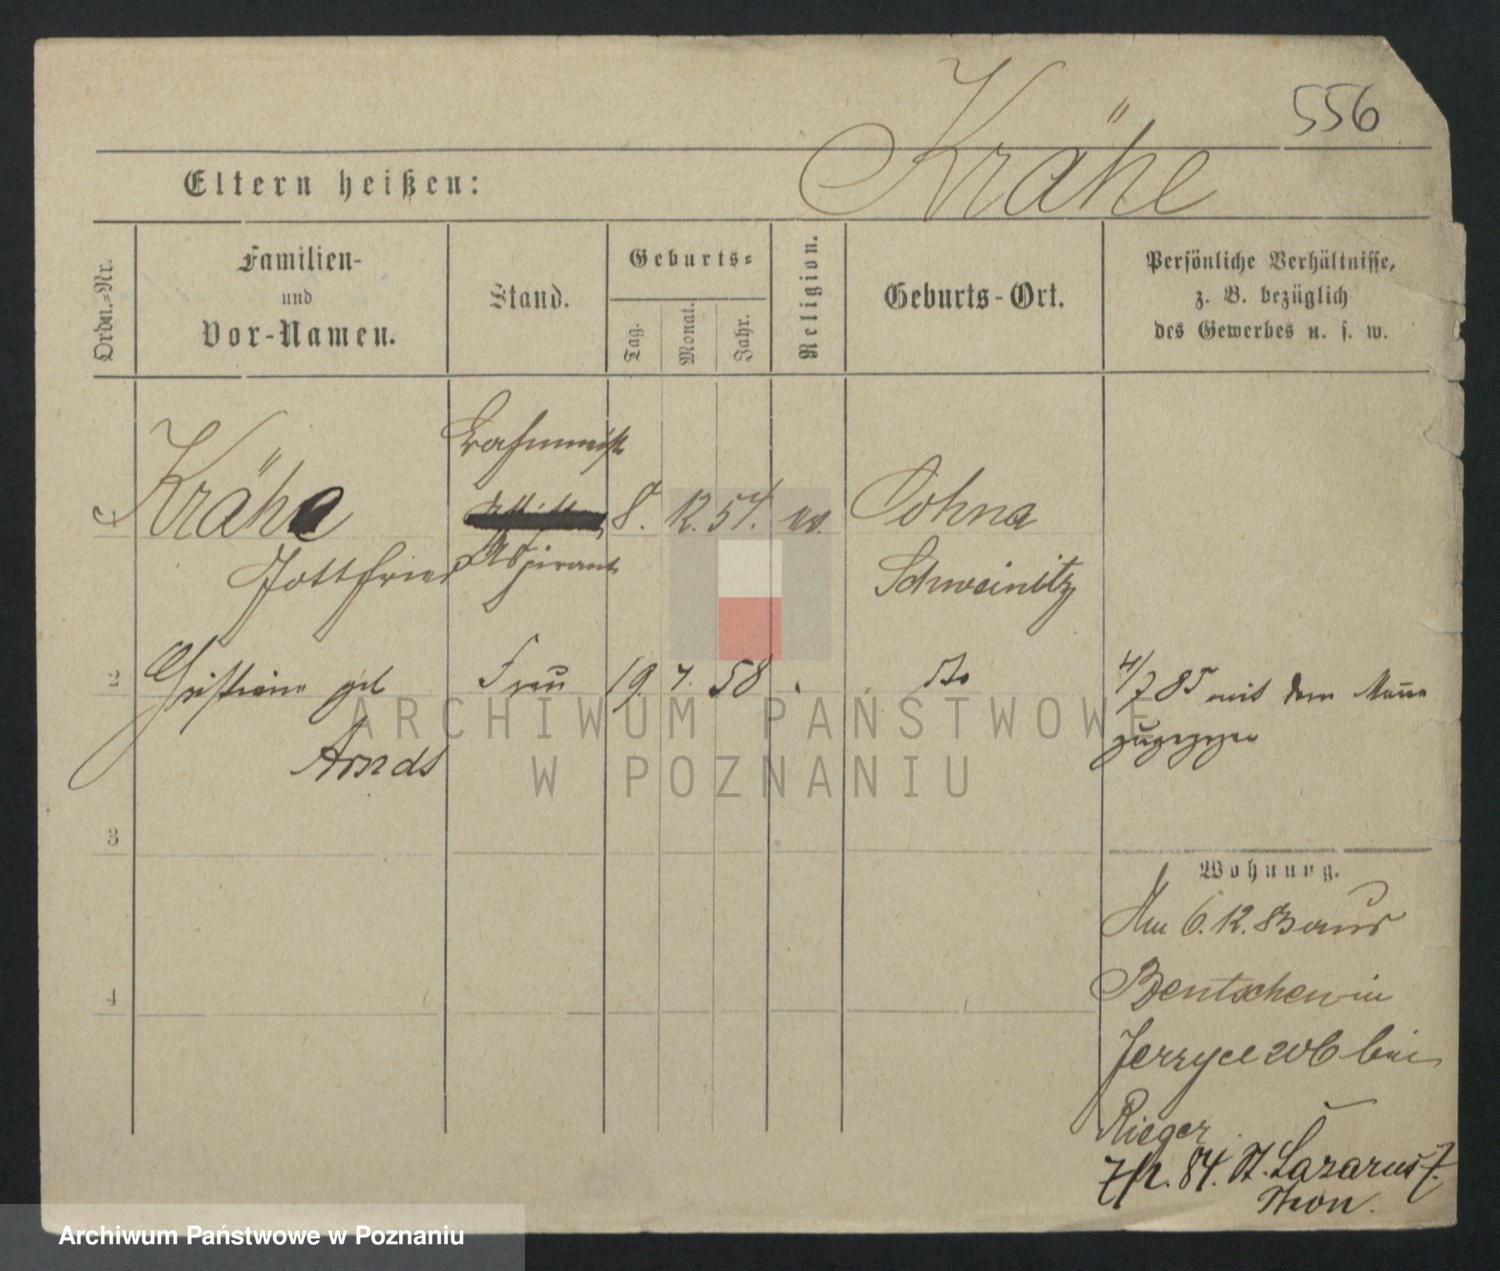 556
Krähe
Eltern heißen:
Ordn.-Nr.
Familien-
und
Vor-Namen.
Stand.
Geburts-
Tag.
Monat.
Jahr.
Religion.
Geburts-Ort.
Persönliche Verhältnisse,
z. B. bezüglich
des Gewerbes u. s. w.
1 Krähe 8. 12. 54. ev. Dohna
Gottfried Aspirant Schweinitz
2 geb Frau 19. 7. 58 do 4/7 85 mit dem Mann
Arndt zugezogen
3
4
Wohnung.
Am 6. 12. 83 aus
Bentschen in
Jerzyce 206 bei
Rieger
7/12. 84. St. Lazarus 7.
Thon.
ARCHIWUM PAŃSTWOWE
W POZNANIU
Archiwum Państwowe w Poznaniu